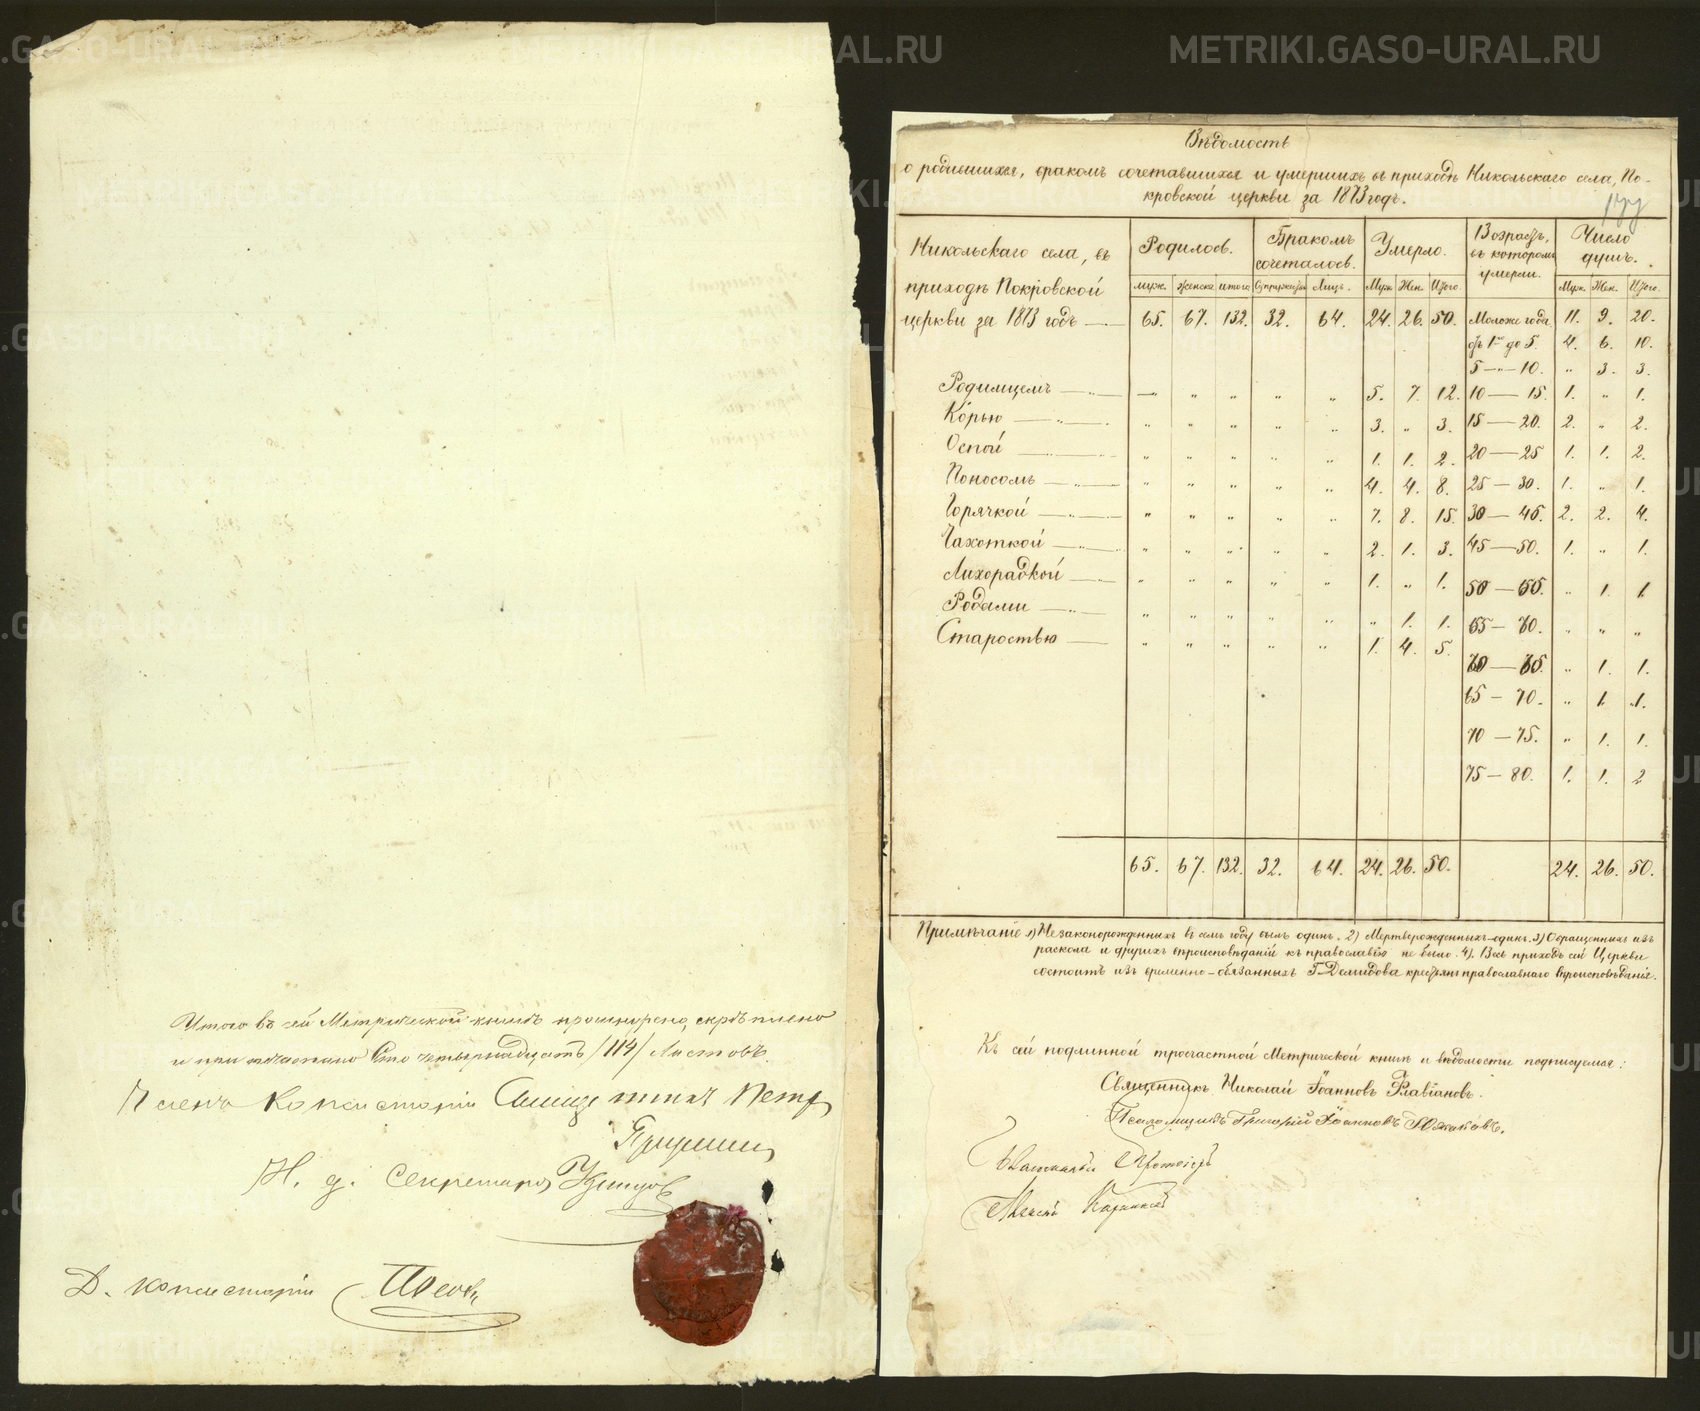 METRIKI.GASO-URAL.RU
Итого въ сей Метрической книгѣ прошнурено, скрѣплено
и припечатано Сто четырнадцать /114/ Листовъ.
Членъ Консисторіи Священникъ Петръ
И. д. Секретаря
Д. Консисторіи
Вѣдомость
о родившихся, бракомъ сочетавшихся и умершихъ въ приходѣ Никольскаго села, По-
кровской церкви за 1873 годъ.
177
Никольскаго села, въ
приходѣ Покровской
церкви за 1873 годъ
Родилось. Бракомъ сочеталось. Умерло. Возрастъ, въ которомъ умерли. Число душъ.
муж. женска итого Супружес. Лицъ. Муж. Жен. Итого. Муж. Жен. Итого.
65. 67. 132. 32. 64. 24. 26. 50. Моложе года 11. 9. 20.
отъ 1 до 5. 4. 6. 10.
5 — " — 10. " 3. 3.
Родимцемъ — " — " " " " 5. 7. 12. 10 — 15. 1. " 1.
Корью — " — " " " " " 3. " 3. 15 — 20. 2. " 2.
Оспой — " — " " " " " 1. 1. 2. 20 — 25 1. 1. 2.
Поносомъ — " — " " " " " 4. 4. 8. 25 — 30. 1. " 1.
Горячкой — " — " " " " " 7. 8. 15. 30 — 45. 2. 2. 4.
Чахоткой — " — " " " " " 2. 1. 3. 45 — 50. 1. " 1.
Лихорадкой — " — " " " " " 1. " 1. 50 — 55. " 1. 1.
Родами — " — " " " " " " 1. 1. 55 — 60. " " "
Старостью — " " " " " 1. 4. 5. 60 — 65. " 1. 1.
65 — 70. " 1. 1.
70 — 75. " 1. 1.
75 — 80. 1. 1. 2
65. 67. 132. 32. 64. 24. 26. 50. 24. 26. 50.
Примѣчаніе 1) Незаконорожденныхъ въ семъ году былъ одинъ. 2) Мертворожденныхъ — одинъ. 3) Обращенныхъ изъ
раскола и другихъ вѣроисповѣданій къ православію не было. 4). Весь приходъ сей Церкви
состоитъ изъ временно-обязанныхъ Г. Демидова крестьянъ православнаго вѣроисповѣданія.
Къ сей подлинной троечастной Метрической книгѣ и вѣдомости подписуемся:
Священникъ Николай Іоанновъ Флавіановъ.
Псаломщикъ Григорій Іоанновъ Южаковъ.
Алексѣй